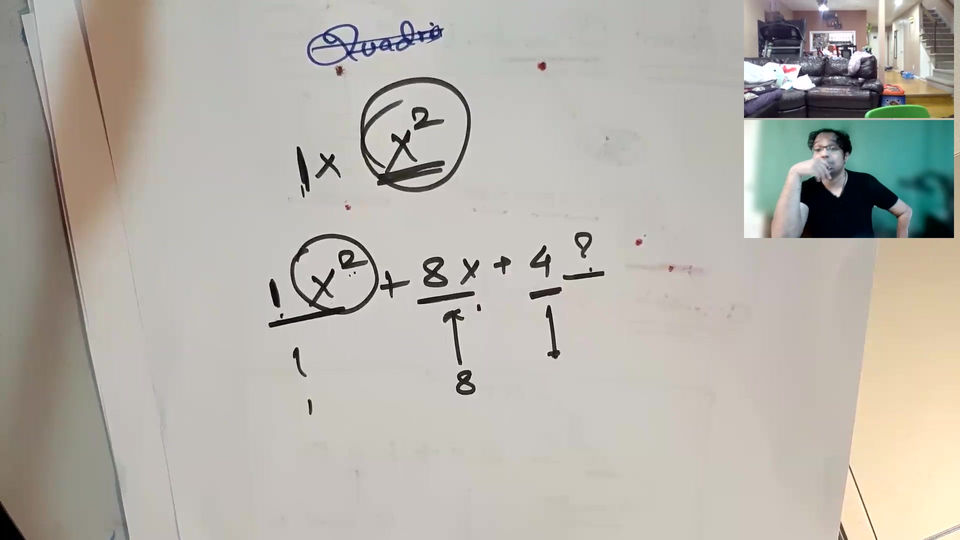 Quadra
1 x x²
1 x² + 8x + 4 ?
8